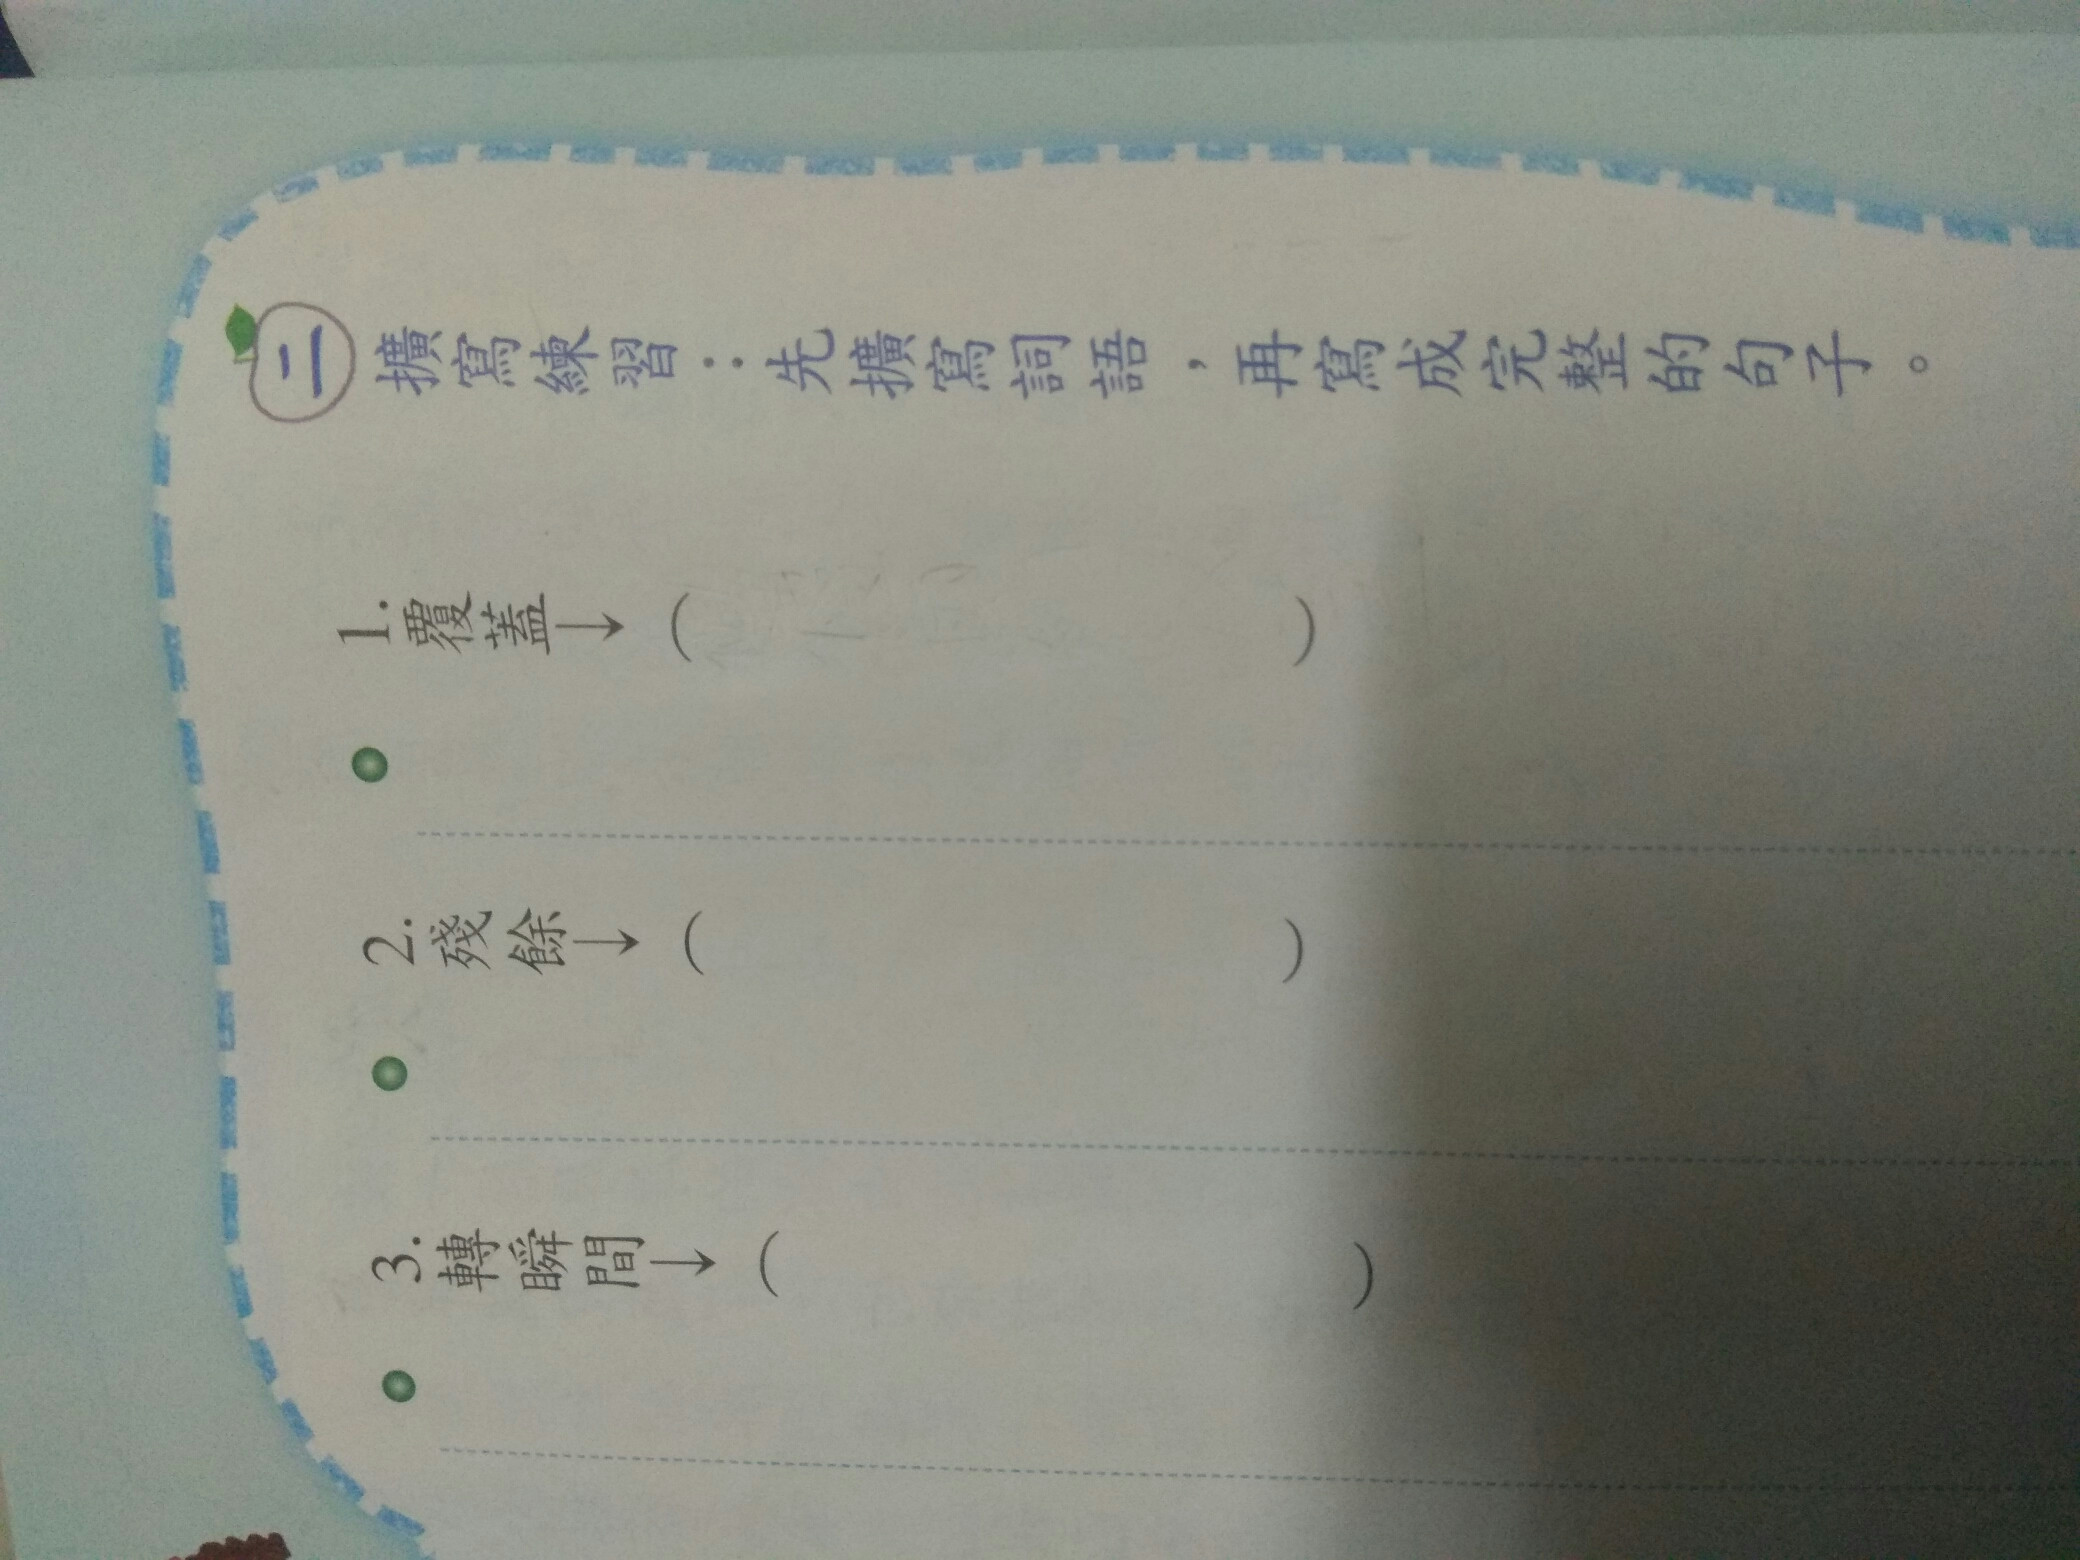 二 擴寫練習：先擴寫詞語，再寫成完整的句子。
1.覆蓋→（ ）
2.殘餘→（ ）
3.轉瞬間→（ ）